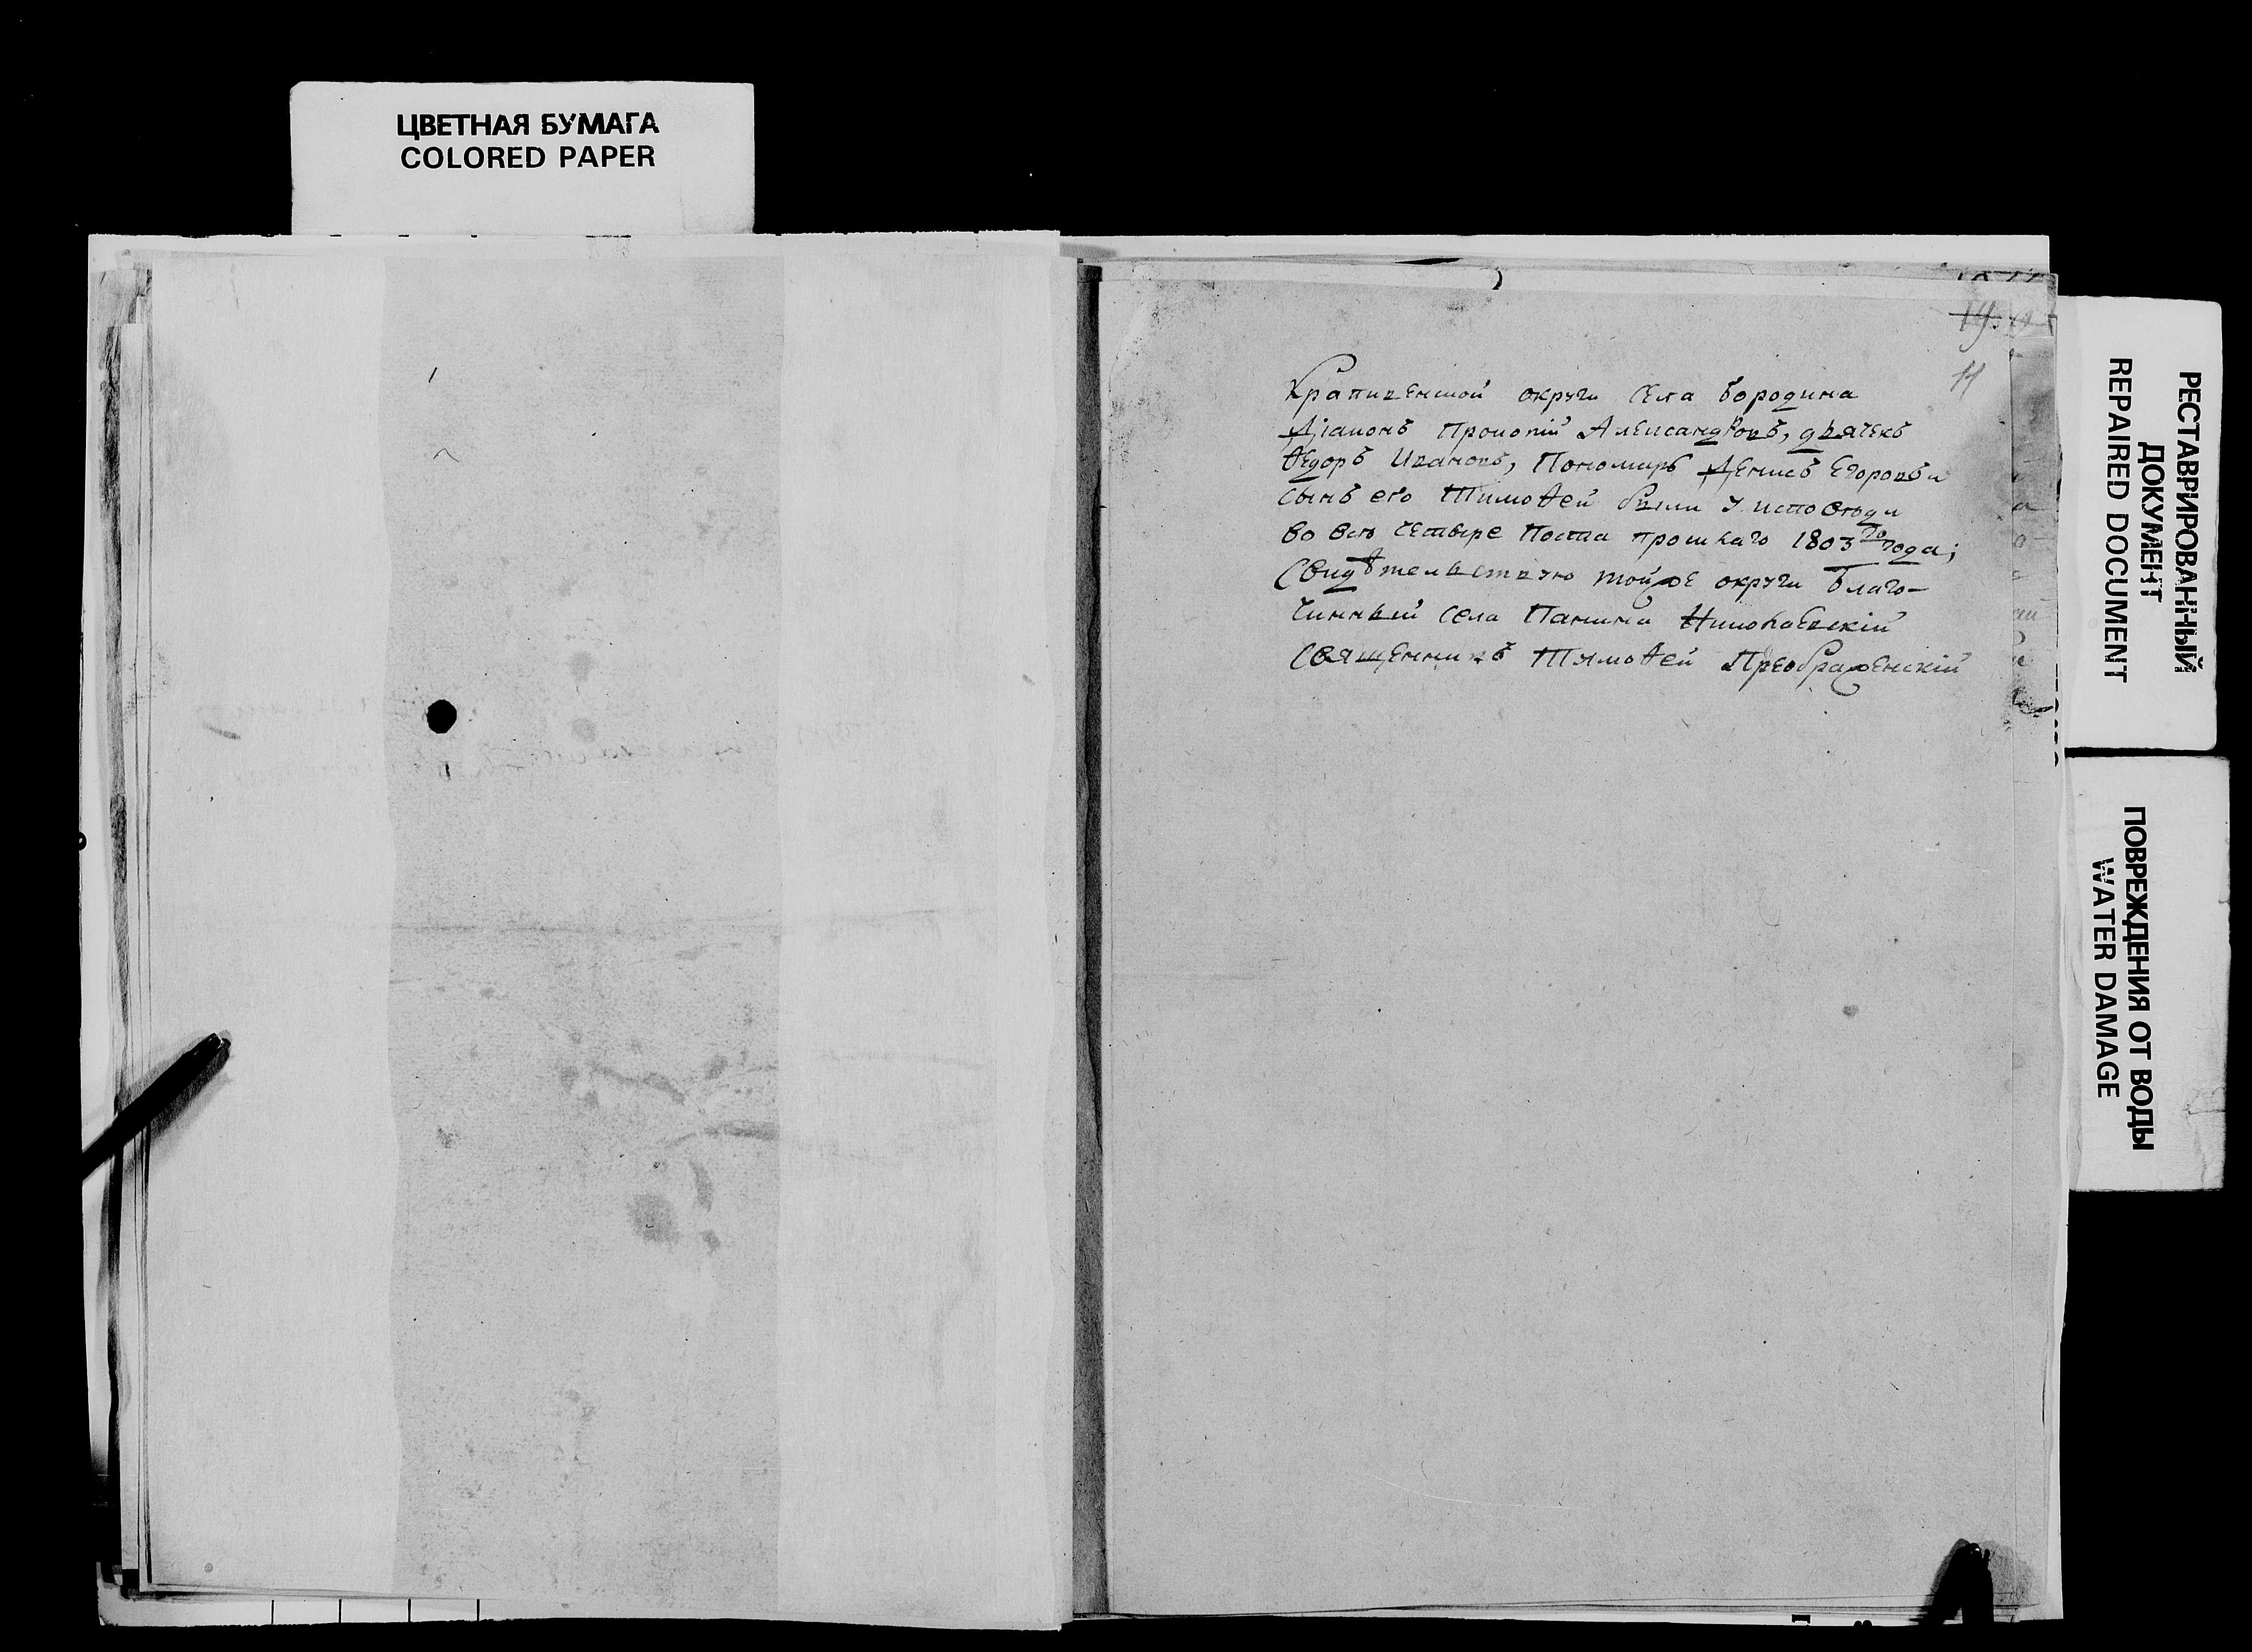 ЦВЕТНАЯ БУМАГА
COLORED PAPER
19
11
Крапивенской округи села Бородина
Діаконъ Прокопій Александровъ, дьячекъ
Ѳедоръ Ивановъ, Пономарь Денисъ Егоровъ и
сынъ его Тимоѳей были у исповѣди
во всѣ четыре Поста прошлаго 1803го года;
Свидѣтельствую тойже округи Благо-
чинный села Панина Николаевскій
Священникъ Тимоѳей Преображенскій
РЕСТАВРИРОВАННЫЙ
ДОКУМЕНТ
REPAIRED DOCUMENT
ПОВРЕЖДЕНИЯ ОТ ВОДЫ
WATER DAMAGE